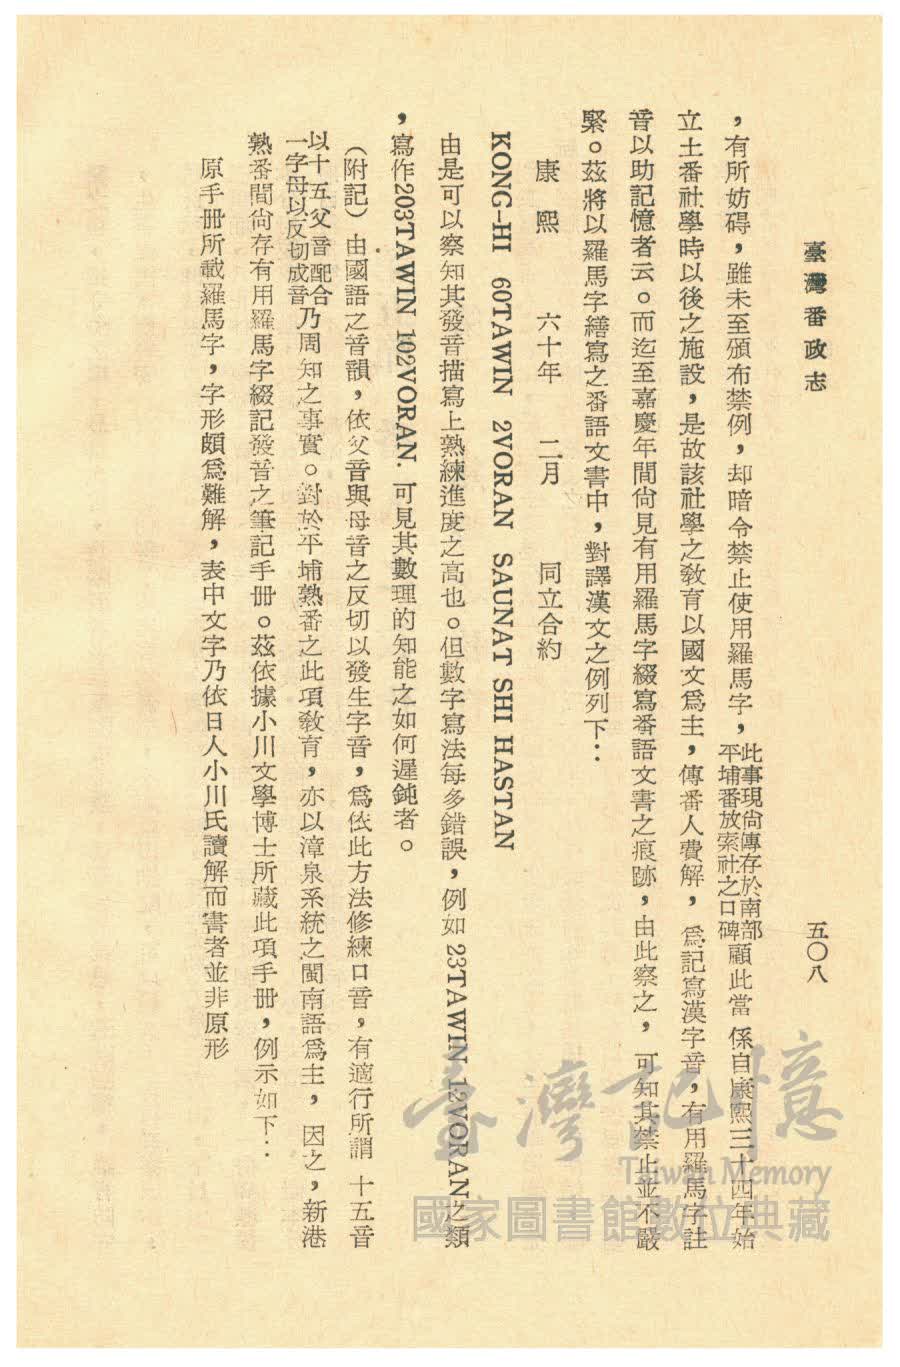 臺灣番政志
五〇八
，有所妨碍，雖未至頒布禁例，却暗令禁止使用羅馬字，此事現尙傳存於南部平埔番放索社之口碑顧此當係自康熙三十四年始
立土番社學時以後之施設，是故該社學之敎育以國文爲主，傳番人費解，爲記寫漢字音，有用羅馬字註
音以助記憶者云。而迄至嘉慶年間尙見有用羅馬字綴寫番語文書之痕跡，由此察之，可知其禁止並不嚴
緊。茲將以羅馬字繕寫之番語文書中，對譯漢文之例列下：
康熙 六十年 二月 同立合約
KONG-HI 60TAWIN 2VORAN SAUNAT SHI HASTAN
由是可以察知其發音描寫上熟練進度之高也。但數字寫法每多錯誤，例如 23TAWIN 12VORAN之類
，寫作203TAWIN 102VORAN. 可見其數理的知能之如何遲鈍者。
（附記）由國語之音韻，依父音與母音之反切以發生字音，爲依此方法修練口音，有適行所謂 十五音
以十五父音配合一字母以反切成音乃周知之事實。對於平埔熟番之此項敎育，亦以漳泉系統之閩南語爲主，因之，新港
熟番間尙存有用羅馬字綴記發音之筆記手册。茲依據小川文學博士所藏此項手册，例示如下：
原手册所載羅馬字，字形頗爲難解，表中文字乃依日人小川氏讀解而書者並非原形
臺灣記憶
Taiwan Memory
國家圖書館數位典藏